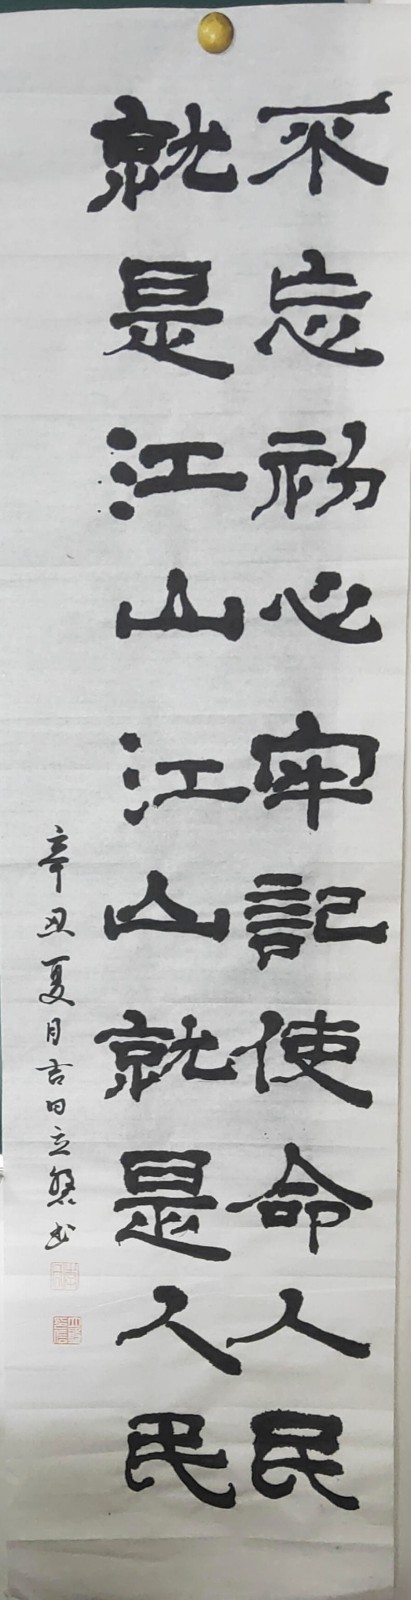 不忘初心牢記使命人民
就是江山江山就是人民
辛丑夏月吉日立磐书